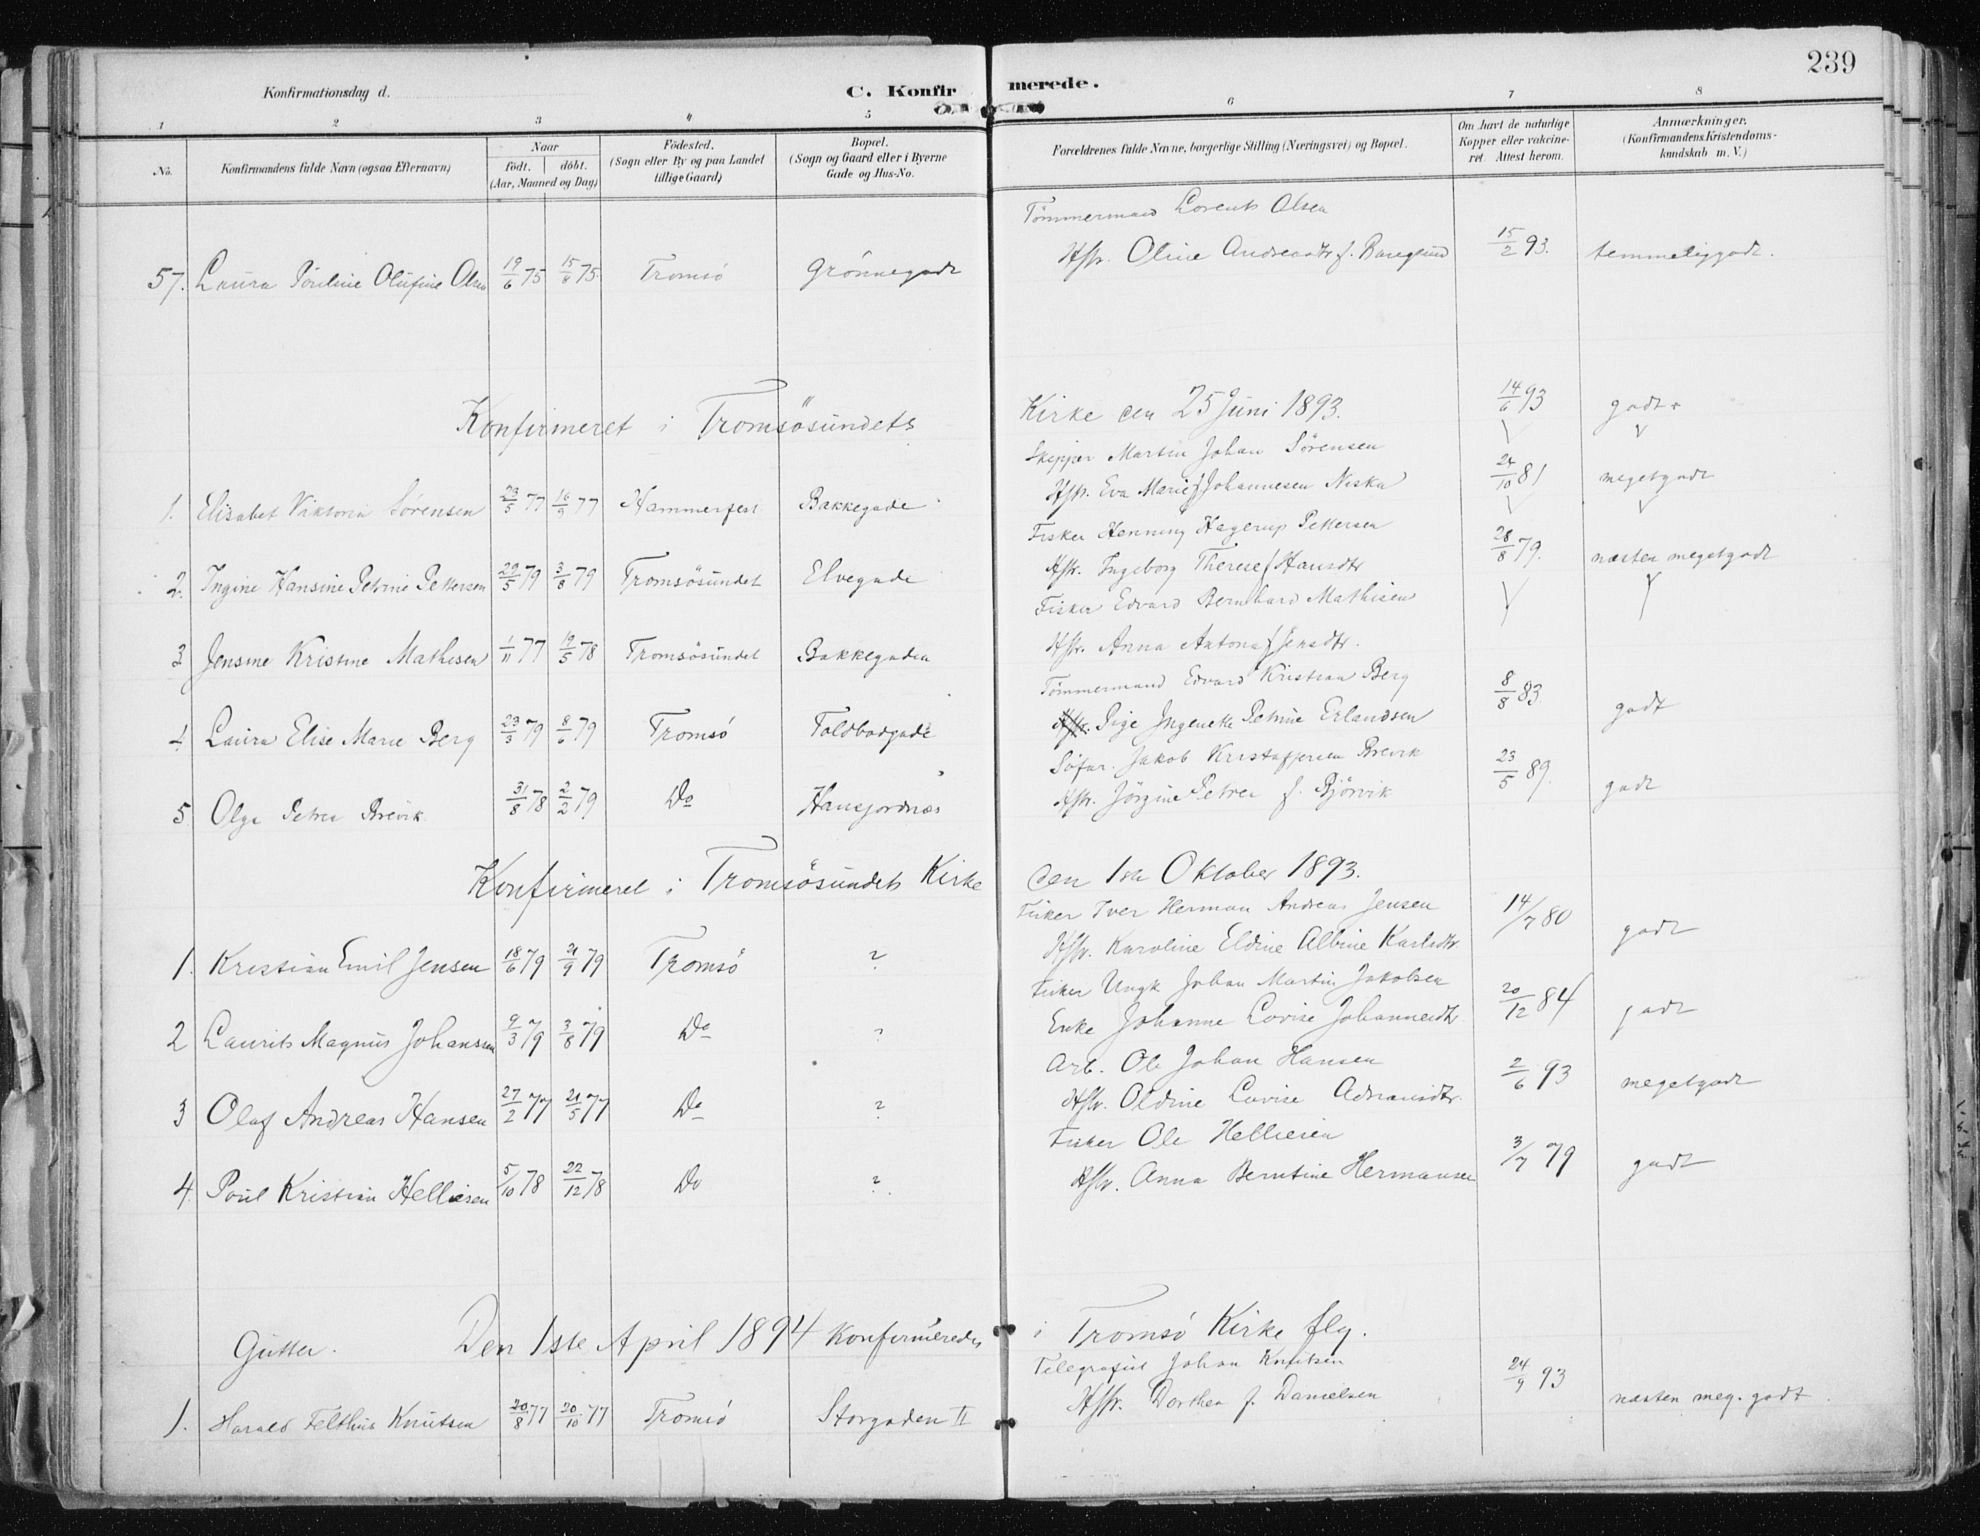 239
Konfirmationsdag d. C. Konfirmerede.
1 2 3 4 5 6 7 8
No. Konfirmandens fulde Navn (ogsaa Efternavn) Naar født. døbt. (Aar, Maaned og Dag) Fødested. (Sogn eller By og paa Landet tillige Gaard) Bopæl. (Sogn og Gaard eller i Byerne Gade og Hus-No. Forældrenes fulde Navne, borgerlige Stilling (Næringsvei) og Bopæl. Om havt de naturlige Kopper eller vakcineret. Attest herom. Anmærkninger. (Konfirmandens Kristendomskundskab m. V.)
Tömmermand Lorents Olsen
57. Laura Pouline Olufine Olsen 19/6 75 15/8 75 Tromsö Grönnegade Hstr. Oline Andreasdtr f. 15/2 93. temmeliggodt.
Konfirmeret i Tromsösundets Kirke den 25 Juni 1893. 14/6 93 godt
Skipper Martin Johan Sörensen
1. Elisabet Viktoria Sörensen 23/5 77 16/9 77 Hammerfest Bakkegade Hstr. Eva Marie f Johannesen Niska 24/10 81 megetgodt
Fisker Henning Hagerup Pettersen
2. Ingine Hansine Petrine Pettersen 29/5 79 3/8 79 Tromsösundet Elvegade Hstr. Ingeborg Therese f Hansdtr 28/8 79. næsten megetgodt
Fisker Edvard Bernhard Mathisen
3 Jensine Kristine Mathisen 1/11 77 19/5 78 Tromsösundet Bakkegaden Hstr. Anna Antona f Jensdtr.
Tömmermand Edvard Kristian Berg
4. Laura Elise Marie Berg 23/3 79 8/6 79 Tromsö Toldbodgade Pige Ingeneke Petrine Erlandsen 8/8 83. godt
Söfar. Jakob Kristoffersen Brevik
5. Olga Petrea Brevik 31/8 78 2/2 79 Do Hansjordnæs Hstr. Jörgine Petrea f. Björvik 23/5 89. godt
Konfirmeret i Tromsösundets Kirke den 1ste Oktober 1893.
Fisker Iver Herman Andreas Jensen
1. Kristian Emil Jensen 18/6 79 21/9 79 Tromsö ? Hstr. Karoline Eldine Albine Karlsdtr. 14/7 80 godt
Fisker Ungk Johan Martin Jakobsen
2 Laurits Magnus Johanssen 9/3 79 3/8 79 Do ? Enke Johanne Lovise Johannesdtr 20/12 84 godt
Arb. Ole Johan Hansen
3 Olaf Andreas Hansen 27/2 77 21/5 77 Do ? Hstr. Oldine Lovise Adriansdtr. 2/6 93 megetgodt
Fisker Ole Helliesen
4. Poul Kristian Helliesen 5/10 78 22/12 78 Do ? Hstr. Anna Berntine Hermansen 3/7 79 godt
Gutter. Den 1ste April 1894 Konfirmeredes i Tromsö Kirke flg.
Telegrafist Johan Knutsen
1. Harald Felthus Knutsen 20/8 77 20/10 77 Tromsö Storgaden II Hstr. Dorthea f. Danielsen 24/9 93 næsten meg. godt.